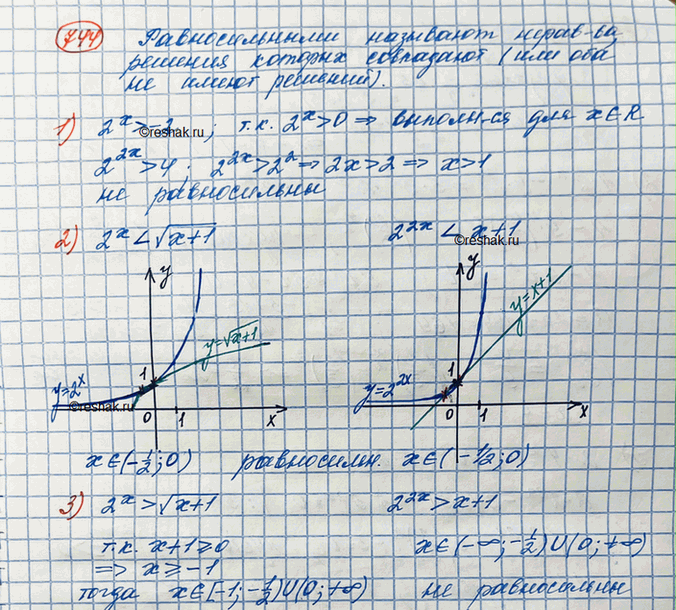 744 Равносильными называют нерав-ва
решения которых совпадают (или оба
не имеют решений).
1) 2^x > -2 ; т.к. 2^x > 0 ⇒ выполн-ся для x∈R
©reshak.ru
2^{2x} > 4 ; 2^{2x} > 2^2 ⇒ 2x > 2 ⇒ x > 1
не равносильны
2) 2^x < √(x+1) 2^{2x} < x+1
©reshak.ru
y y
y=√(x+1) y=x+1
1 1
y=2^x y=2^{2x}
©reshak.ru
0 1 x 0 1 x
x∈(-1/2;0) равносильн. x∈(-1/2;0)
3) 2^x > √(x+1) 2^{2x} > x+1
т.к. x+1≥0 x∈(-∞;-1/2)∪(0;+∞)
⇒ x≥-1
тогда x∈[-1;-1/2)∪(0;+∞) не равносильны